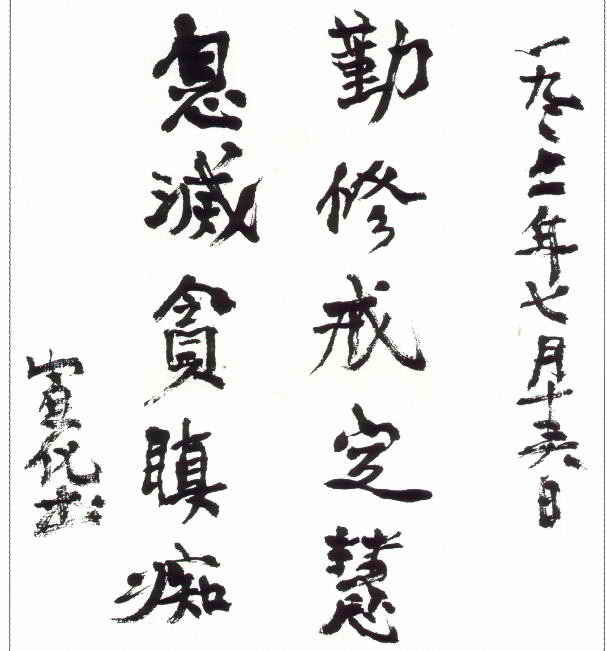 一九年七月十日
勤修戒定慧
息滅貪瞋痴
宣化书